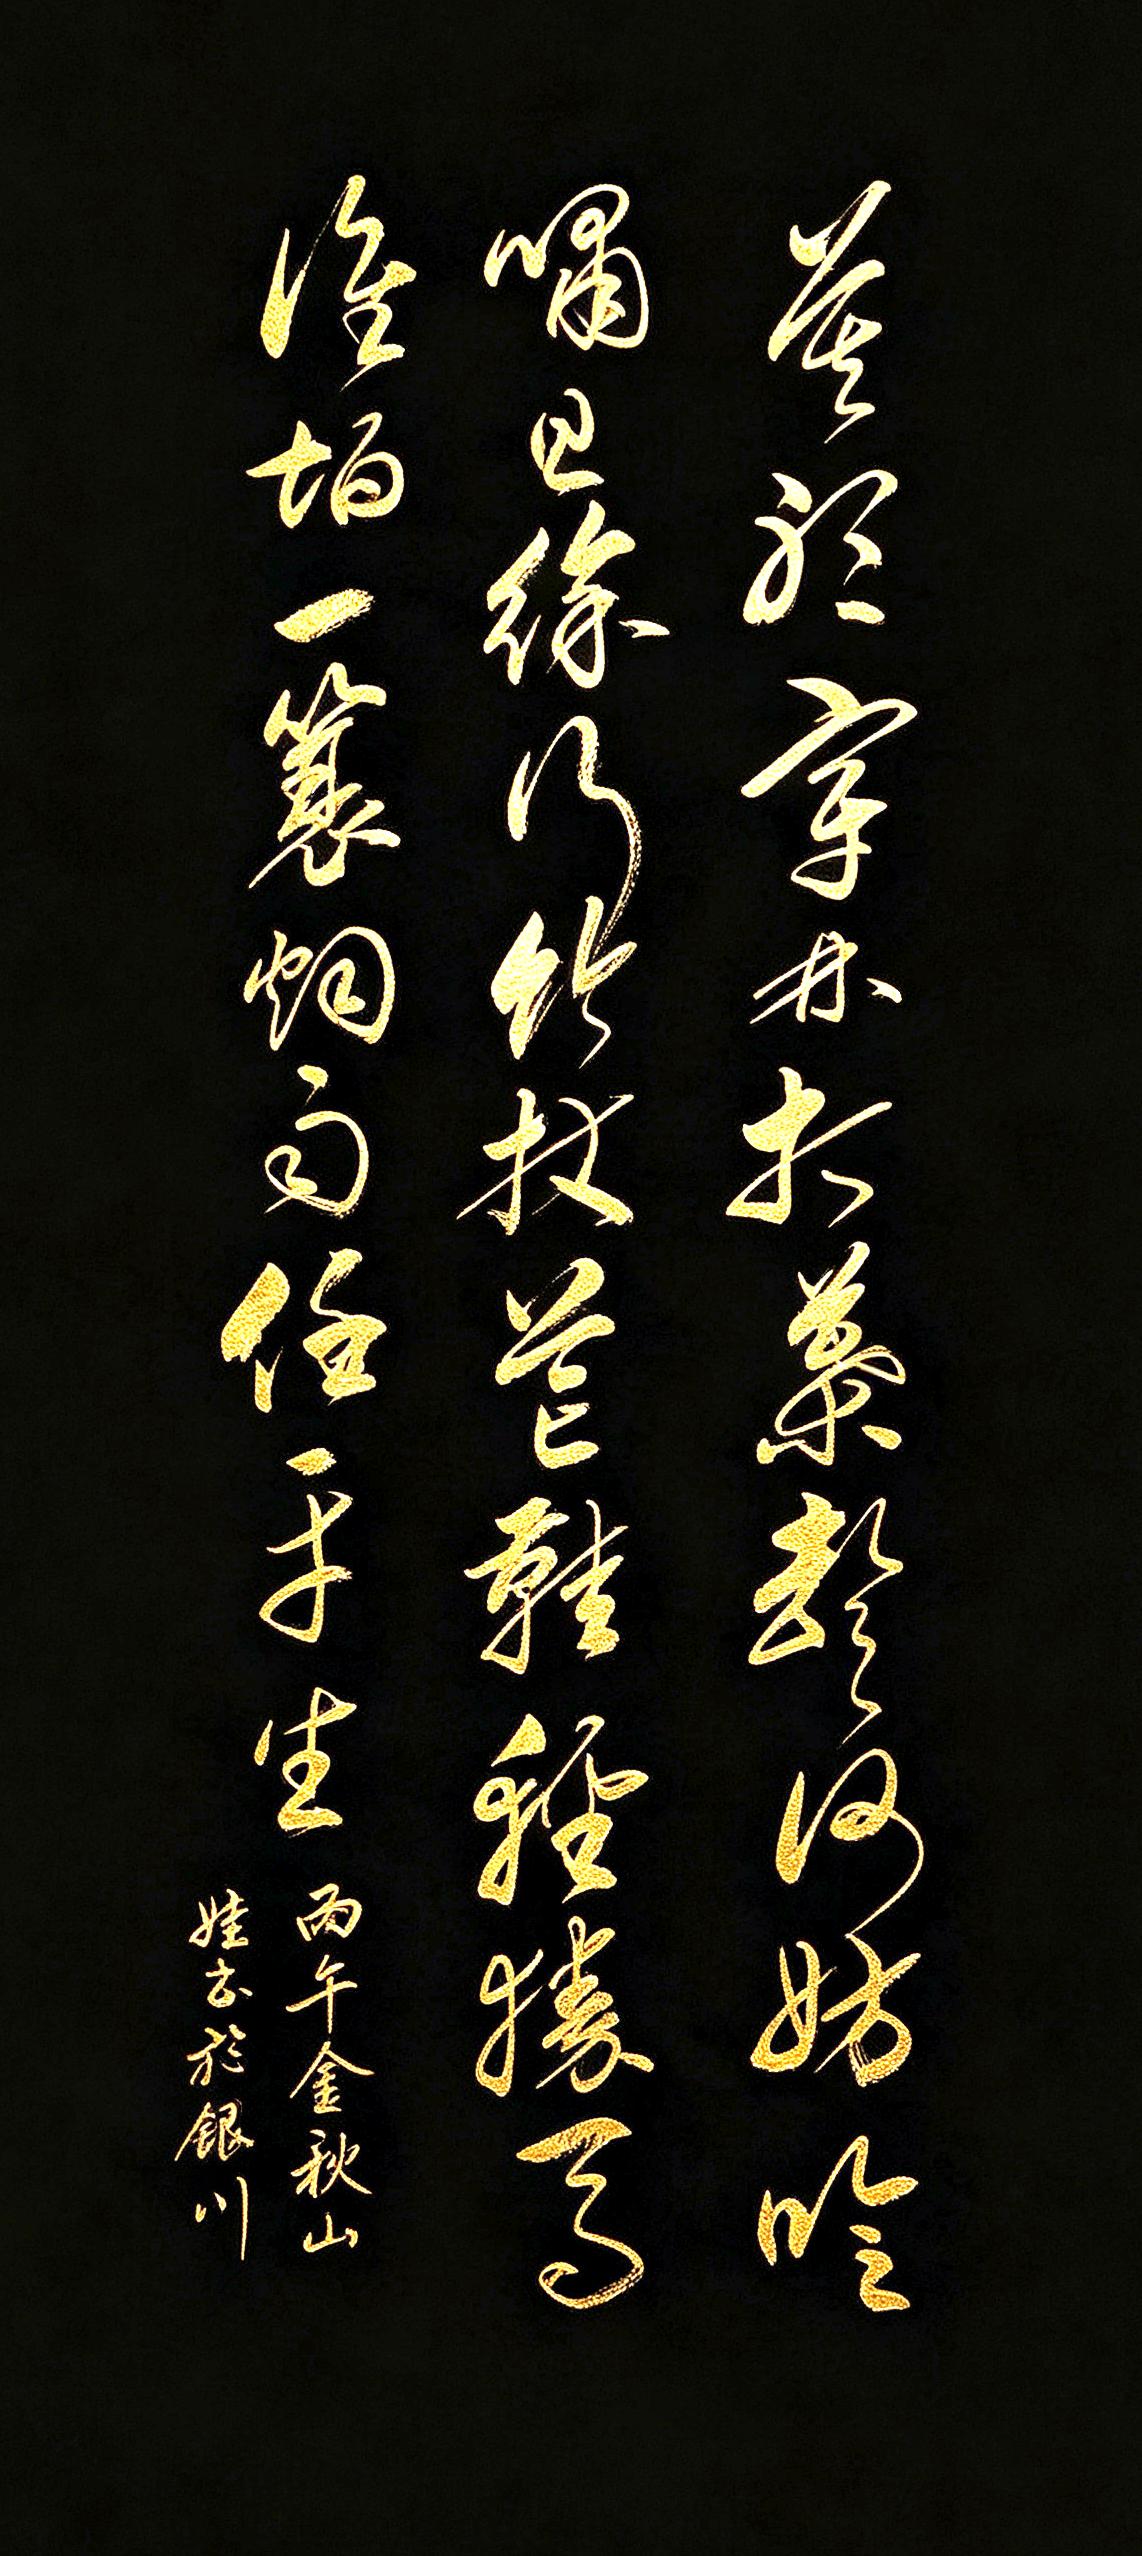 莫聽穿林打葉聲何妨吟
嘯且徐行竹杖芒鞋輕勝馬
誰怕一蓑烟雨任平生
丙午金秋山
娃书於銀川